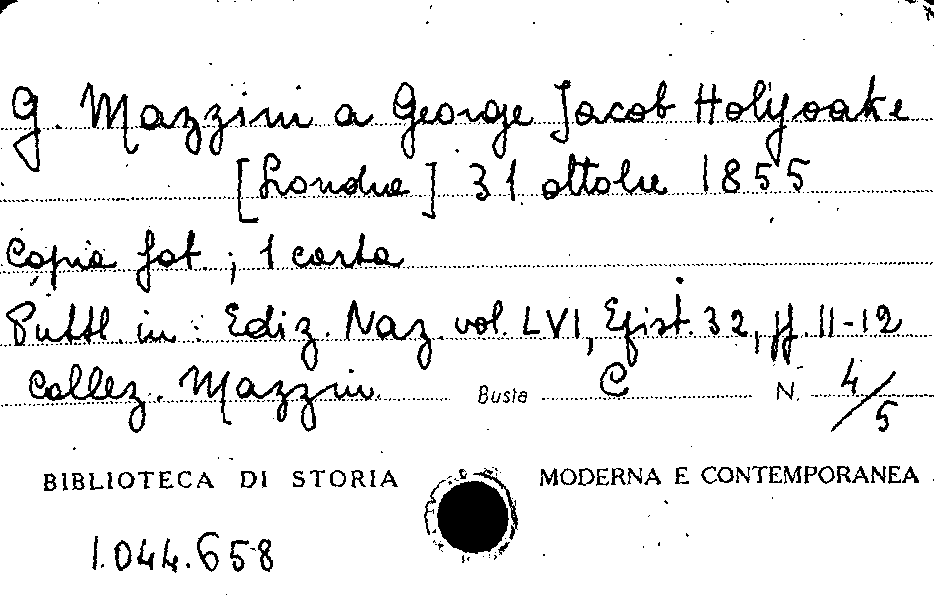 G. Mazzini a George Jacob Holyoake
[Londra] 31 ottobre 1855
Copia fot.; 1 carta
Pubbl. in: Ediz. Naz. vol. LVI, Epist. 32, pp. 11-12
Collez. Mazzini Busta C N. 4/5
BIBLIOTECA DI STORIA MODERNA E CONTEMPORANEA
1.044.658